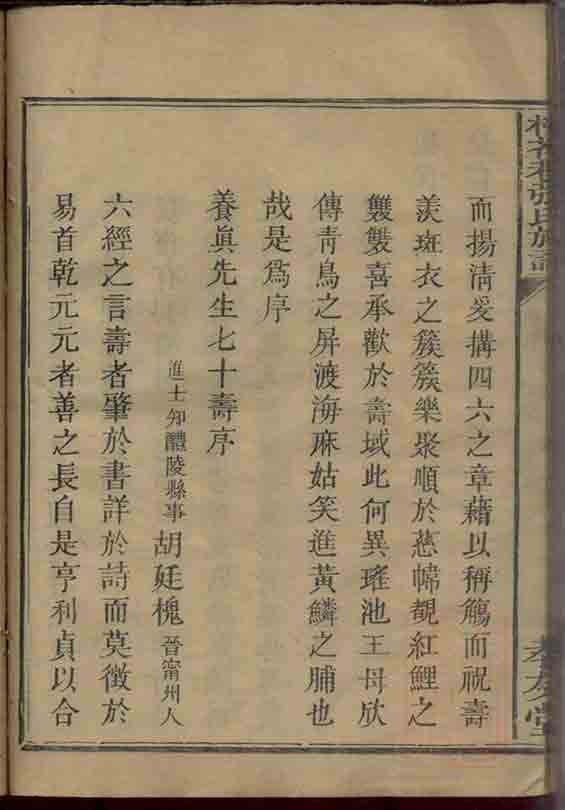 而揚清爰搆四六之章藉以稱觴而祝壽
羡斑衣之簇簇樂聚順於慈幃覩紅鯉之
雙雙喜承歡於壽域此何異瑤池王母欣
傳青鳥之屏渡海麻姑笑進黃鱗之脯也
哉是為序
養眞先生七十壽序
進士知醴陵縣事 胡廷槐 晉甯州人
六經之言壽者肇於書詳於詩而莫徵於
易首乾元元者善之長自是亨利貞以合